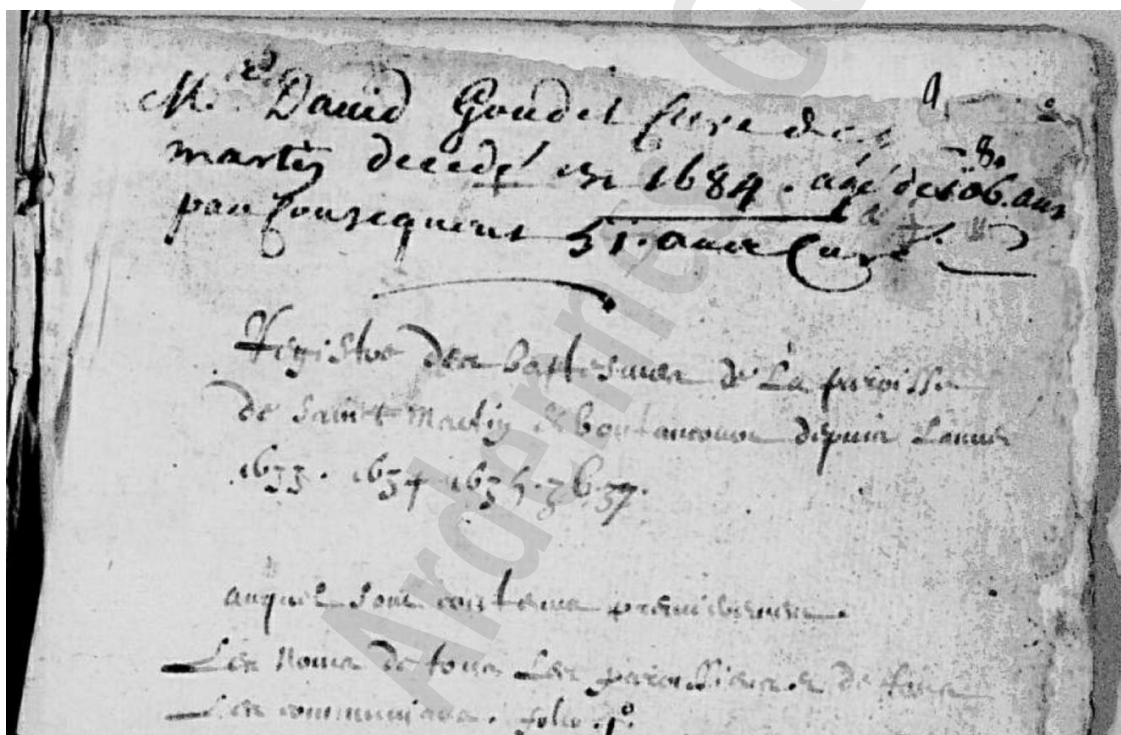 Mre David Goudet Cure de
martin decedé en 1684. agé de 86. ans
par consequent 51. ans Curé.
Registre des baptesmes de La paroisse
de Sainct Martin & boutancour depuis Lannee
1633. 1634 1635. 36. 37.
auquel sont contenus premierement.
Les Noms de tous Les paroissiens & de tous
Les communians. folio. 1o.
Ardennes